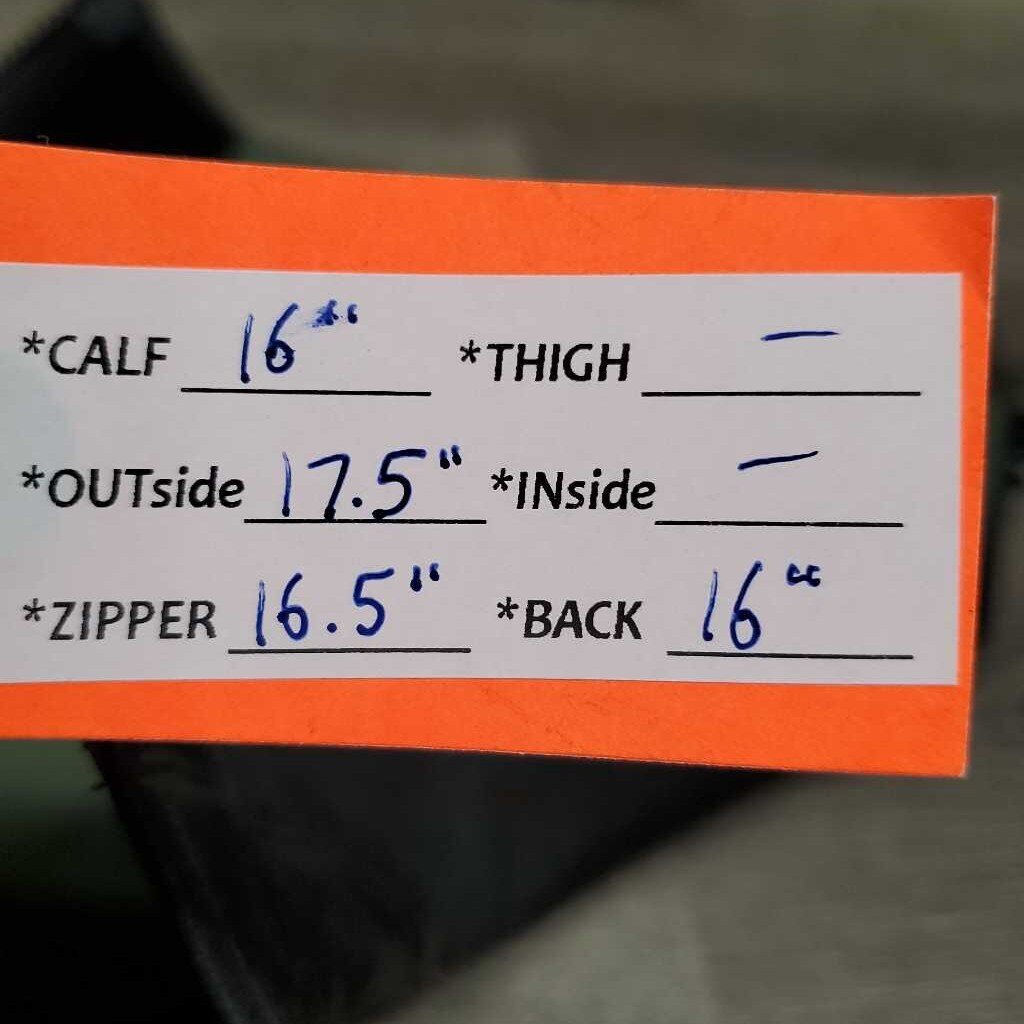 *CALF 16" *THIGH —
*OUTside 17.5" *INside —
*ZIPPER 16.5" *BACK 16"